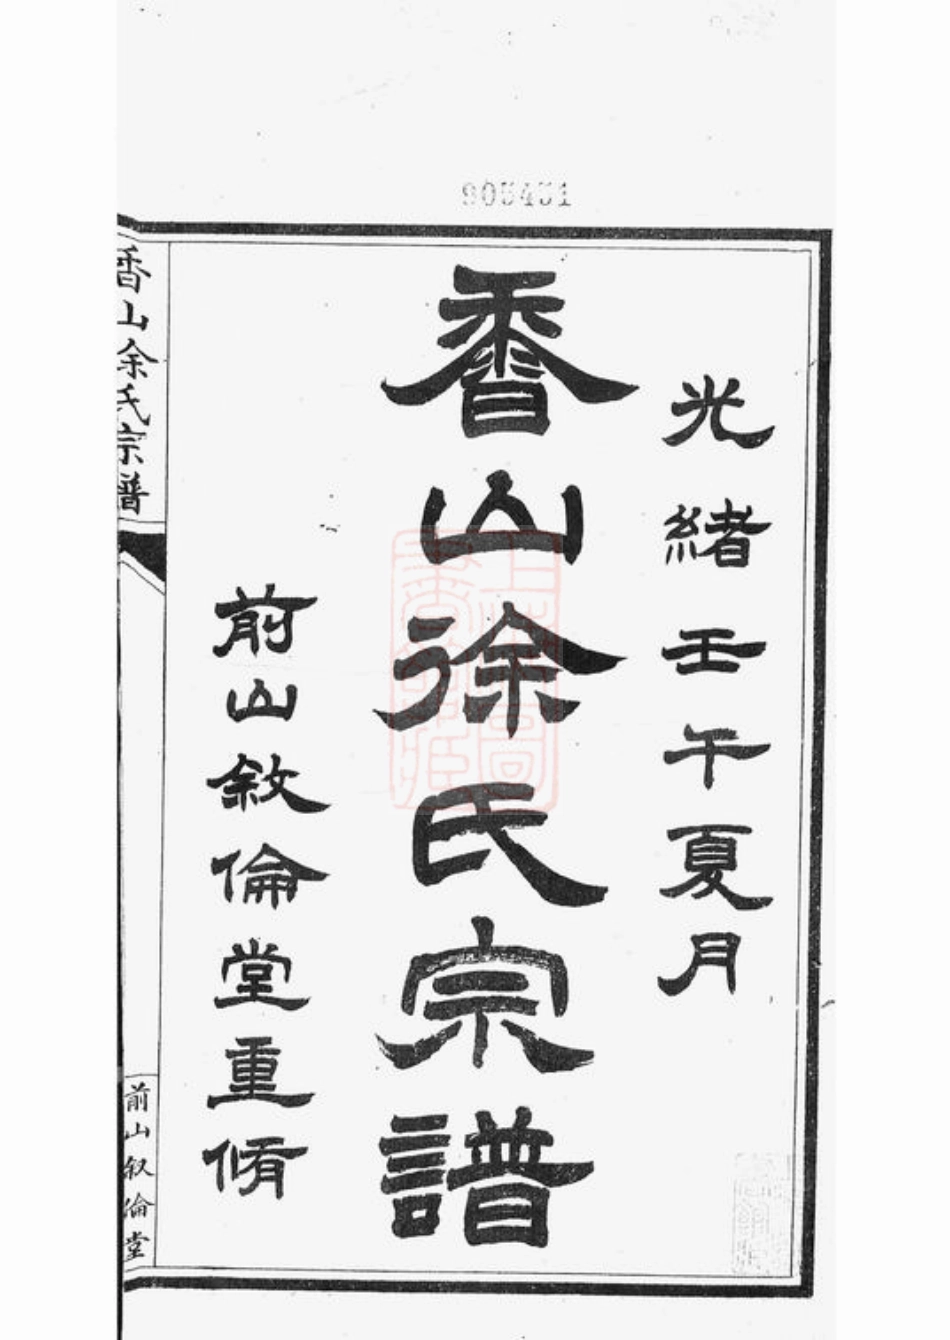 905431
光緒壬午夏月
香山徐氏宗譜
前山敘倫堂重脩
香山徐氏宗譜
前山敘倫堂